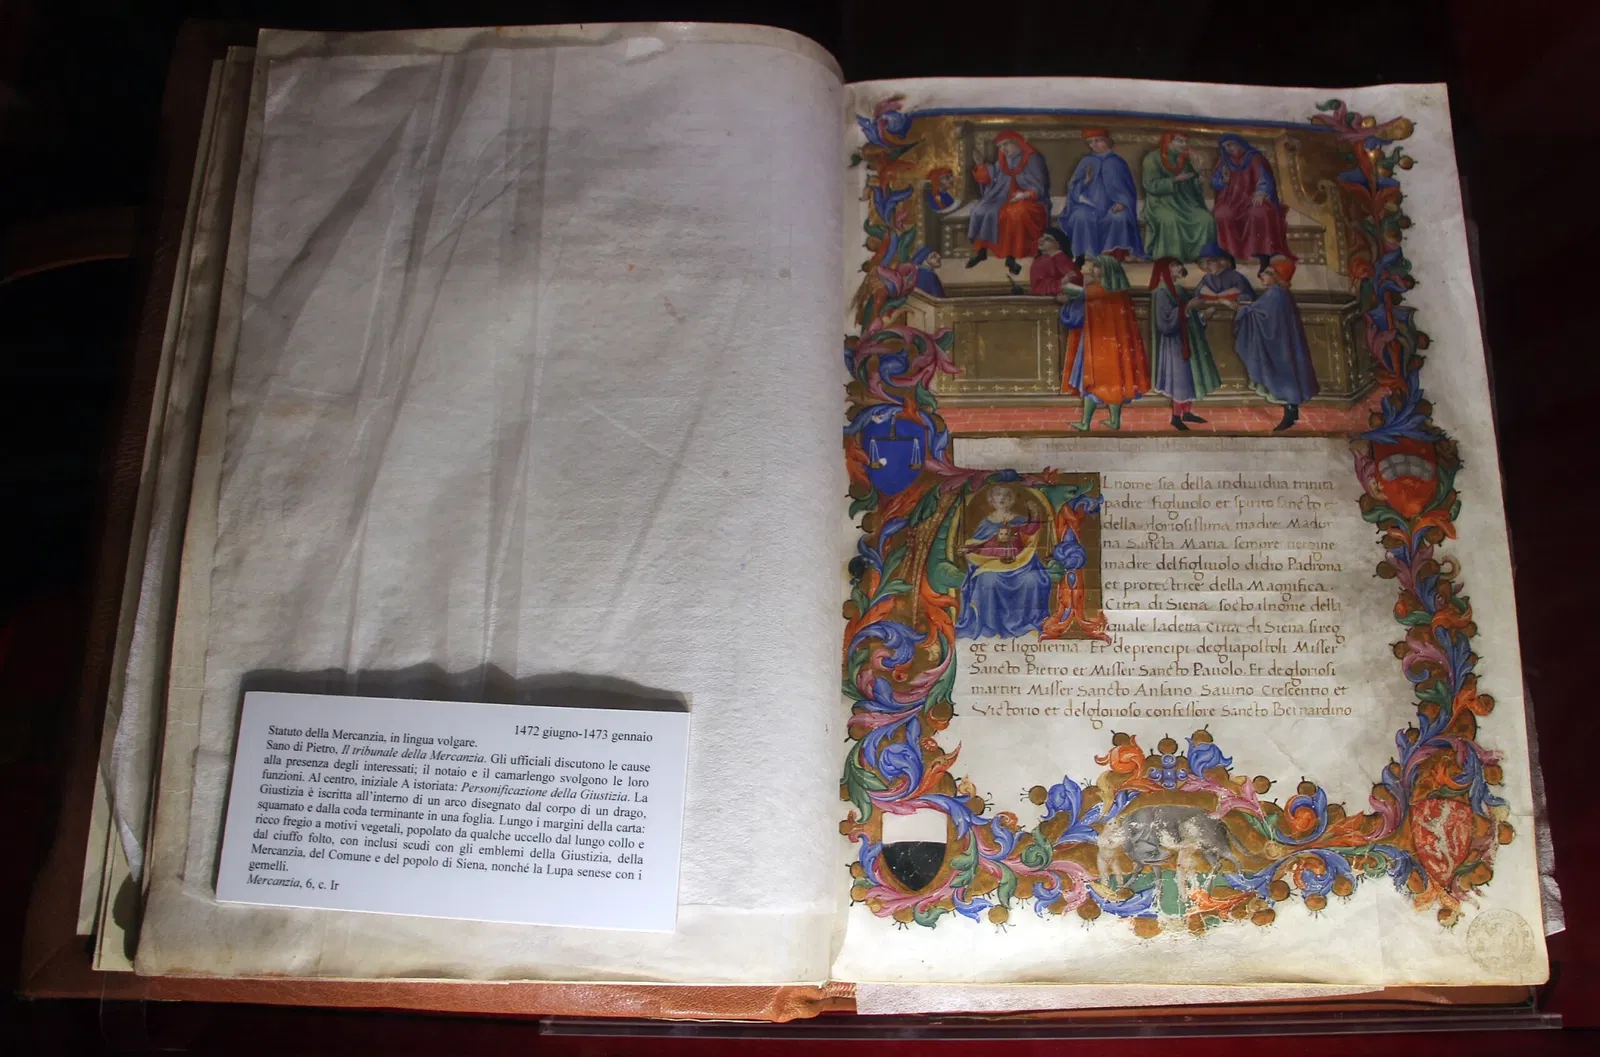 Statuto della Mercanzia, in lingua volgare. 1472 giugno-1473 gennaio
Sano di Pietro, Il tribunale della Mercanzia. Gli ufficiali discutono le cause
alla presenza degli interessati; il notaio e il camarlengo svolgono le loro
funzioni. Al centro, iniziale A istoriata: Personificazione della Giustizia. La
Giustizia è iscritta all'interno di un arco disegnato dal corpo di un drago,
squamato e dalla coda terminante in una foglia. Lungo i margini della carta:
ricco fregio a motivi vegetali, popolato da qualche uccello dal lungo collo e
dal ciuffo folto, con inclusi scudi con gli emblemi della Giustizia, della
Mercanzia, del Comune e del popolo di Siena, nonché la Lupa senese con i
gemelli.
Mercanzia, 6, c. Ir
L nome sia della individua trinita
padre figliuolo et spirito sancto et
della gloriosissima madre Madon
na Sancta Maria sempre vergine
madre del figliuolo di dio Padrona
et protectrice della Magnifica
Citta di Siena socto il nome della
quale la detta Citta di Siena si reg
ge et si governa. Et de prencipi degli apostoli Misser
Sancto Pietro et Misser Sancto Pavolo. Et de gloriosi
martiri Misser Sancto Ansano Savino Crescentio et
Victorio et del glorioso confessore Sancto Bernardino